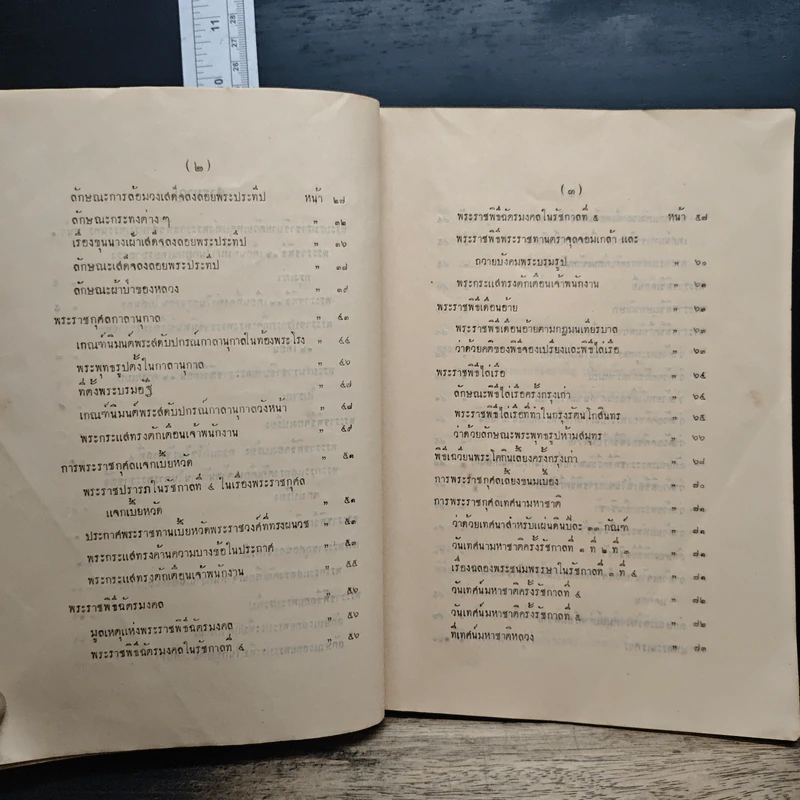 11
28
27
10
26
( ๒ )
ลักษณะการล้อมวงเสด็จลงลอยพระประทีป หน้า ๒๗
ลักษณะกระทงต่าง ๆ " ๓๒
เรื่องขุนนางเฝ้าเสด็จลงลอยพระประทีป " ๓๖
ลักษณะเสด็จลงลอยพระประทีป " ๓๗
ลักษณะผ้าป่าของหลวง " ๓๙
พระราชกุศลกาลานุกาล " ๔๓
เกณฑ์นิมนต์พระสดับปกรณ์กาลานุกาลในท้องพระโรง " ๔๔
พระพุทธรูปตั้งในกาลานุกาล " ๔๖
ที่ตั้งพระบรมอัฐิ " ๔๗
เกณฑ์นิมนต์พระสดับปกรณ์กาลานุกาลวังหน้า " ๔๗
พระกระแสทรงตักเตือนเจ้าพนักงาน " ๔๙
การพระราชกุศลแจกเบี้ยหวัด " ๕๑
พระราชปรารภในรัชกาลที่ ๔ ในเรื่องพระราชกุศล
แจกเบี้ยหวัด " ๕๑
ประกาศพระราชทานเบี้ยหวัดพระราชวงศ์ที่ทรงผนวช " ๕๑
พระกระแสทรงค้านความบางข้อในประกาศ " ๕๓
พระกระแสทรงตักเตือนเจ้าพนักงาน " ๕๕
พระราชพิธีฉัตรมงคล " ๕๖
มูลเหตุแห่งพระราชพิธีฉัตรมงคล " ๕๖
พระราชพิธีฉัตรมงคลในรัชกาลที่ ๔ " ๕๖
( ๓ )
พระราชพิธีฉัตรมงคลในรัชกาลที่ ๕ หน้า ๕๗
พระราชพิธีพระราชทานตราจุลจอมเกล้า และ
ถวายบังคมพระบรมรูป " ๖๐
พระกระแสทรงตักเตือนเจ้าพนักงาน " ๖๑
พระราชพิธีเดือนอ้าย " ๖๓
พระราชพิธีเดือนอ้ายตามกฎมนเทียรบาล " ๖๓
ว่าด้วยคติของพิธีจองเปรียงและพิธีไล่เรือ " ๖๓
พระราชพิธีไล่เรือ " ๖๔
ลักษณะพิธีไล่เรือครั้งกรุงเก่า " ๖๔
พระราชพิธีไล่เรือที่ทำในกรุงรัตนโกสินทร " ๖๕
ว่าด้วยลักษณะพระพุทธรูปห้ามสมุทร " ๖๖
พิธีเฉวียนพระโคกินเลี้ยงครั้งกรุงเก่า " ๖๘
การพระราชกุศลเลี้ยงขนมเบื้อง " ๗๐
การพระราชกุศลเทศนามหาชาติ
ว่าด้วยเทศนาสำหรับแผ่นดินปีละ ๑๓ กัณฑ์ " ๗๑
วันเทศนามหาชาติครั้งรัชกาลที่ ๑ ที่ ๒ ที่ ๓ " ๗๑
เรื่องฉลองพระชนมพรรษาในรัชกาลที่ ๓ ที่ ๔ " ๗๑
วันเทศน์มหาชาติครั้งรัชกาลที่ ๔ " ๗๒
วันเทศน์มหาชาติครั้งรัชกาลที่ ๕ " ๗๒
ที่เทศน์มหาชาติหลวง " ๗๓